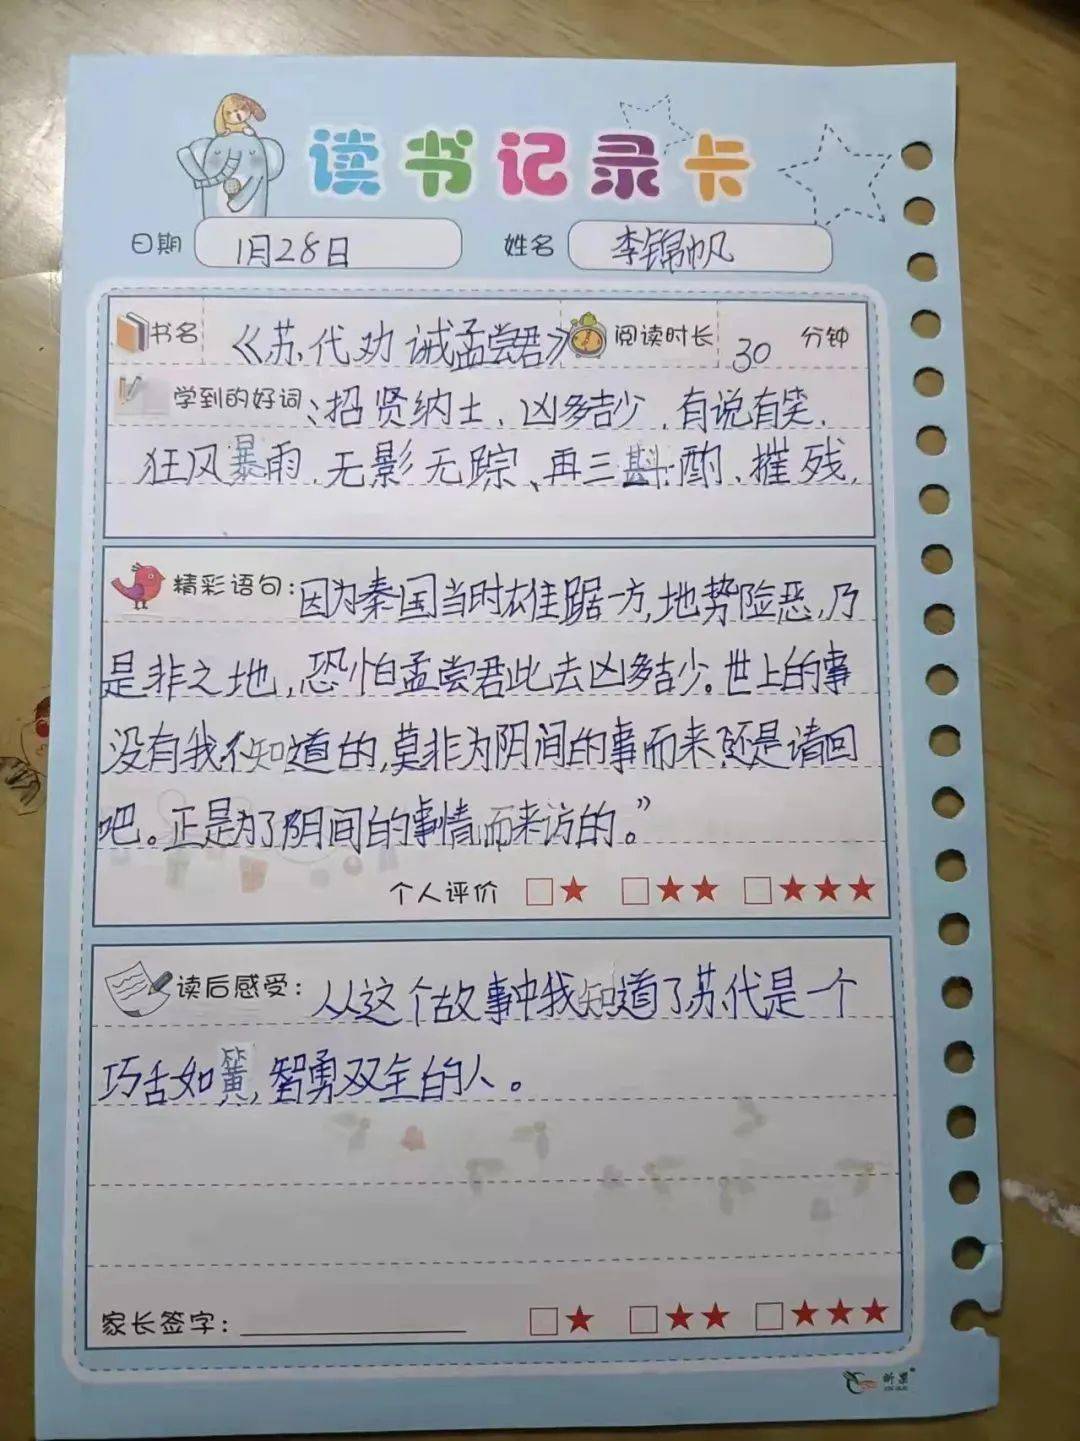 读书记录卡
日期 1月28日 姓名 李锦帆
书名 《苏代劝诫孟尝君》 阅读时长 30 分钟
学到的好词:招贤纳士、凶多吉少、有说有笑、
狂风暴雨、无影无踪、再三斟酌、摧残,
精彩语句:因为秦国当时雄踞一方,地势险恶,乃
是非之地,恐怕孟尝君此去凶多吉少。世上的事
没有我不知道的,莫非为阴间的事而来,还是请回
吧。正是为了阴间的事情而来访的。”
个人评价 □★ □★★ □★★★
读后感受: 从这个故事中我知道了苏代是一个
巧舌如簧,智勇双全的人。
家长签字: □★ □★★ □★★★